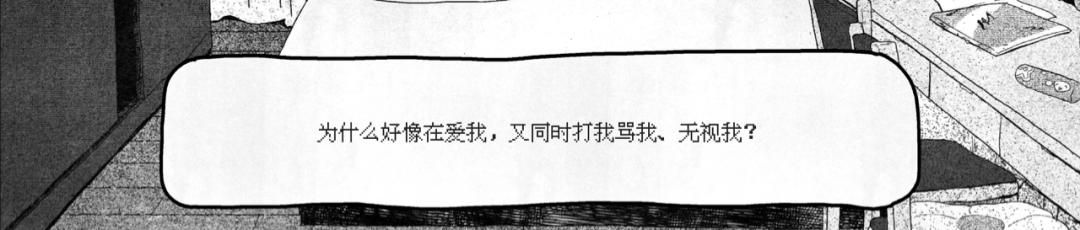 为什么好像在爱我，又同时打我骂我、无视我？